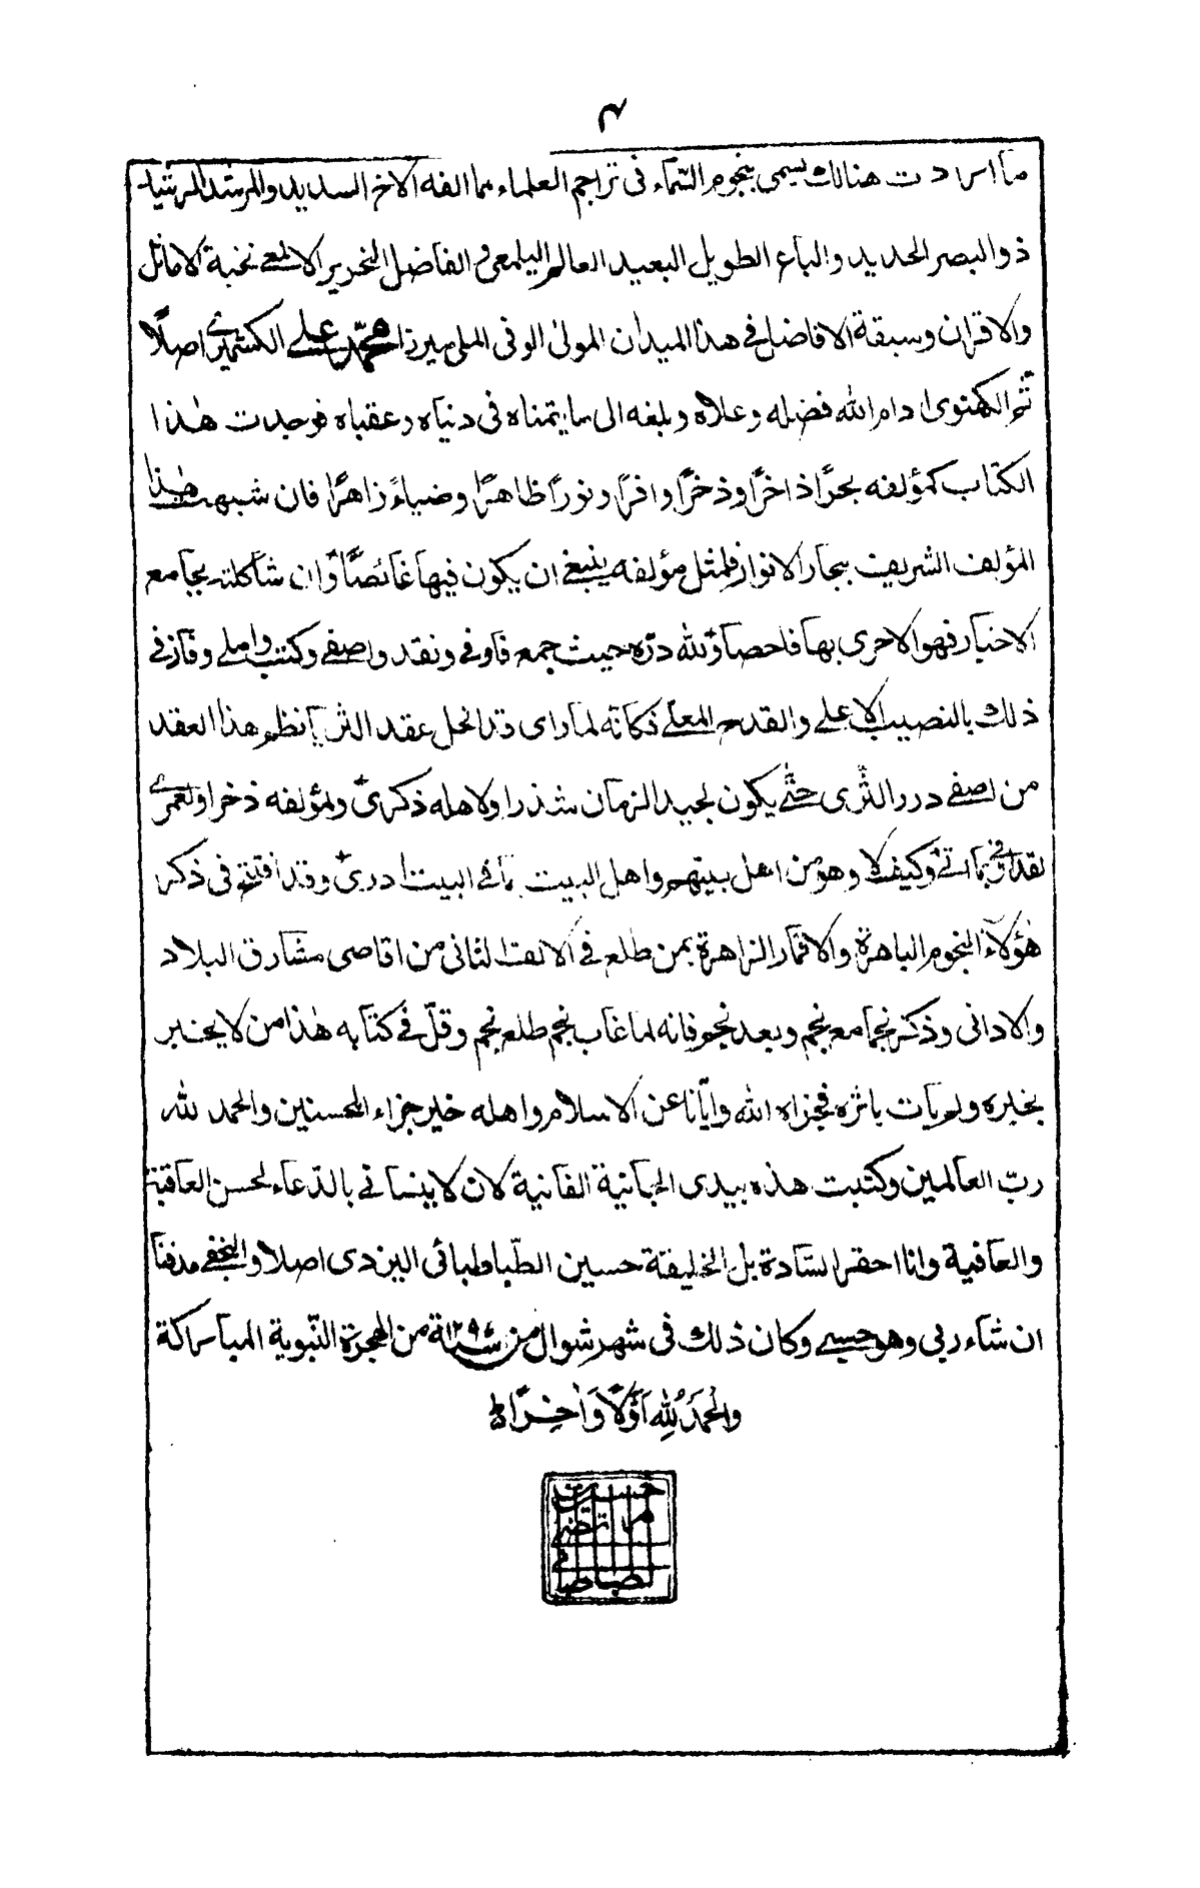 ۴
ما اردت هنالك يسمى بنجوم السّماء فى تراجم العلماء مما الفه الاخ السديد والمرشد الرشيد
ذو البصر الحديد والباع الطويل البعيد العالم اليلمعى والفاضل النحرير الالمعے نخبة الاماثل
والاقران وسبقة الافاضل فے هذا الميدان المولىٰ الوفى الملى ميرزا محمّد علے الكشميرے اصلًا
ثم الكهنوى ادام الله فضله وعلاه وبلغه الى ما يتمناه فى دنياه وعقباه فوجدت هٰذا
الكتاب كمؤلفه بحرًا ذاخرًا وذخرًا وافرًا ونورًا ظاهرًا وضياءً زاهرًا فان شبهت هٰذا
المؤلف الشريف ببحار الانوار فلمثل مؤلفه ينبغے ان يكون فيها غائصًا وان شاكلته بجامع
الاخبار فهو الاحرى بها فاحصا ولله درّه حيث جمع فاوفے ونقد واصفے وكتب واملے وفاز فے
ذلك بالنصيب الاعلے والقدح المعلے فكانه لما راى قد انحل عقد الثريا نظم هذا العقد
من اصفے درر الثرى حتّٰے يكون لجيد الزمان شذرا ولاهله ذكرى ولمؤلفه ذخرا ولعمرے
لقد اتے وكيف لا وهو من اهل بيتهم واهل البيت بما فے البيت ادرى وقد افتتح فى ذكر
هٰؤلآء النجوم الباهرة والاقمار الزاهرة بمن طلع فے الالف الثانى من اقاصى مشارق البلاد
والادانى وذكر نجما مع نجم وبعد نجم فانه لما غاب نجم طلع نجم وقلّ فے كتابه هٰذا من لا يخبر
بخبره ولم يات باثره فجزاه الله وايّانا عن الاسلام واهله خير جزاء المحسنين والحمد لله
ربّ العالمين وكتبت هذه بيدى الجانية الفانية لان لا ينسانے بالدّعاء لحسن العاقبة
والعافية وانا احقر السّادة بل الخليقة حسين الطّباطبائى اليزدى اصلا والنجفے مدفنا
ان شاء ربى وهو حسبے وكان ذلك فى شهر شوال من ١٢٩٤ سنة من الهجرة النّبوية المباركة
والحَمدُ لِلّٰهِ اَوَّلًا وَاٰخِرًا
حسين
مرتضى
الطباطبائى